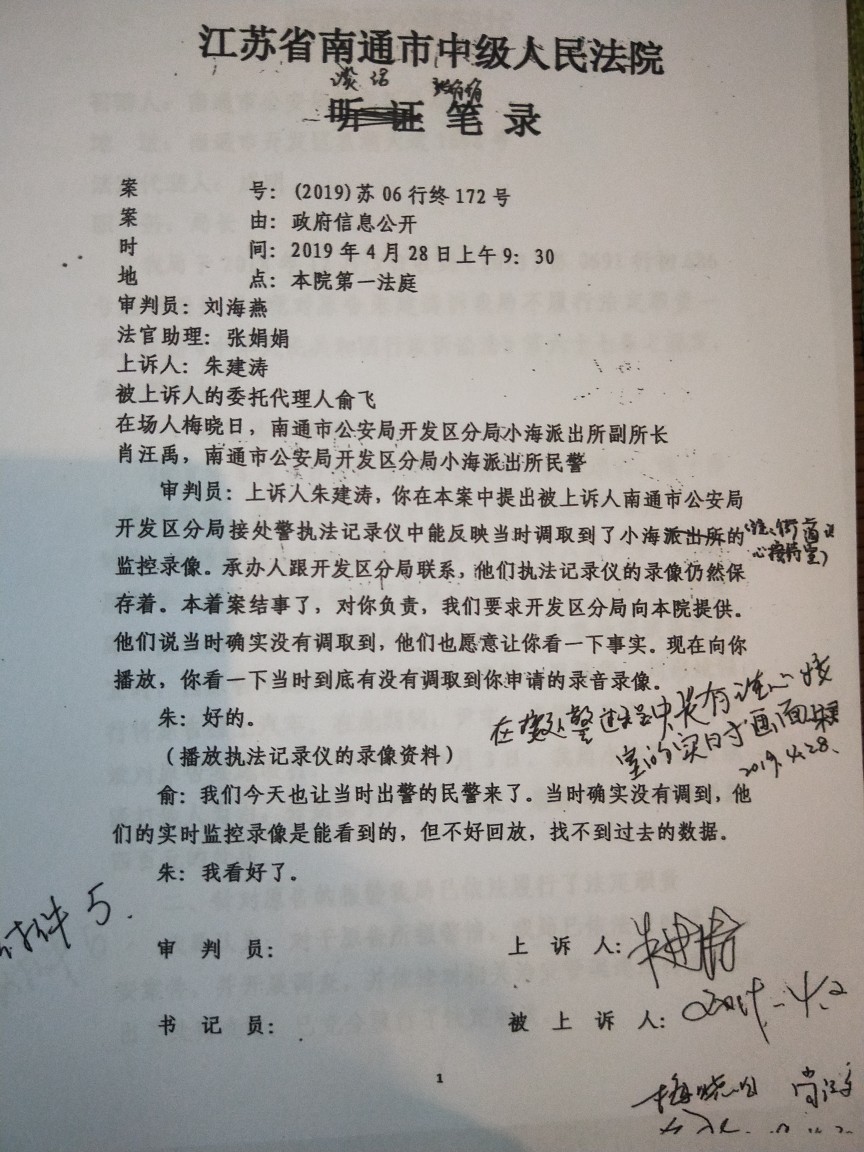 江苏省南通市中级人民法院
谈话
听证笔录
案 号：(2019)苏 06 行终 172 号
案 由：政府信息公开
时 间：2019 年 4 月 28 日上午 9：30
地 点：本院第一法庭
审判员：刘海燕
法官助理：张娟娟
上诉人：朱建涛
被上诉人的委托代理人俞飞
在场人梅晓日，南通市公安局开发区分局小海派出所副所长
肖汪禹，南通市公安局开发区分局小海派出所民警
审判员：上诉人朱建涛，你在本案中提出被上诉人南通市公安局
开发区分局接处警执法记录仪中能反映当时调取到了小海派出所的
心接待室）
监控录像。承办人跟开发区分局联系，他们执法记录仪的录像仍然保
存着。本着案结事了，对你负责，我们要求开发区分局向本院提供。
他们说当时确实没有调取到，他们也愿意让你看一下事实。现在向你
播放，你看一下当时到底有没有调取到你申请的录音录像。
朱：好的。
（播放执法记录仪的录像资料）
2019.4.28.
俞：我们今天也让当时出警的民警来了。当时确实没有调到，他
们的实时监控录像是能看到的，但不好回放，找不到过去的数据。
朱：我看好了。
附件 5.
审 判 员： 上 诉 人：朱建涛
书 记 员： 被 上 诉 人：
1
梅晓日